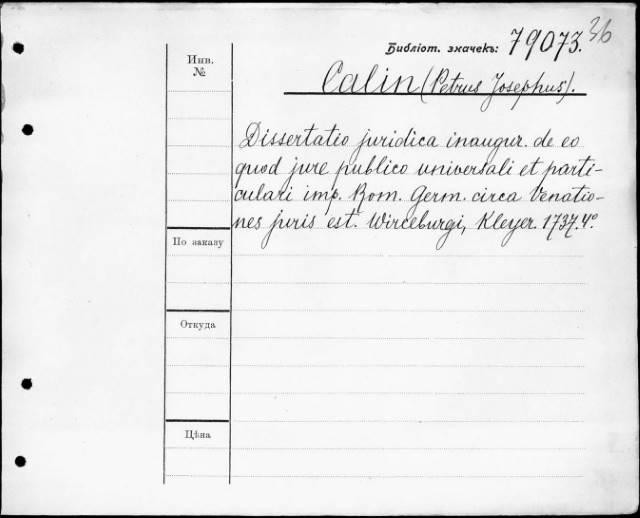 36
Библіот. значекъ: 79073.
Инв.
№
Calin (Petrus Josephus).
Dissertatio juridica inaugur. de eo
quod jure publico universali et parti-
culari imp. Rom. Germ. circa Venatio-
nes juris est. Wirceburgi, Kleyer. 1737. 4º.
По заказу
Откуда
Цѣна